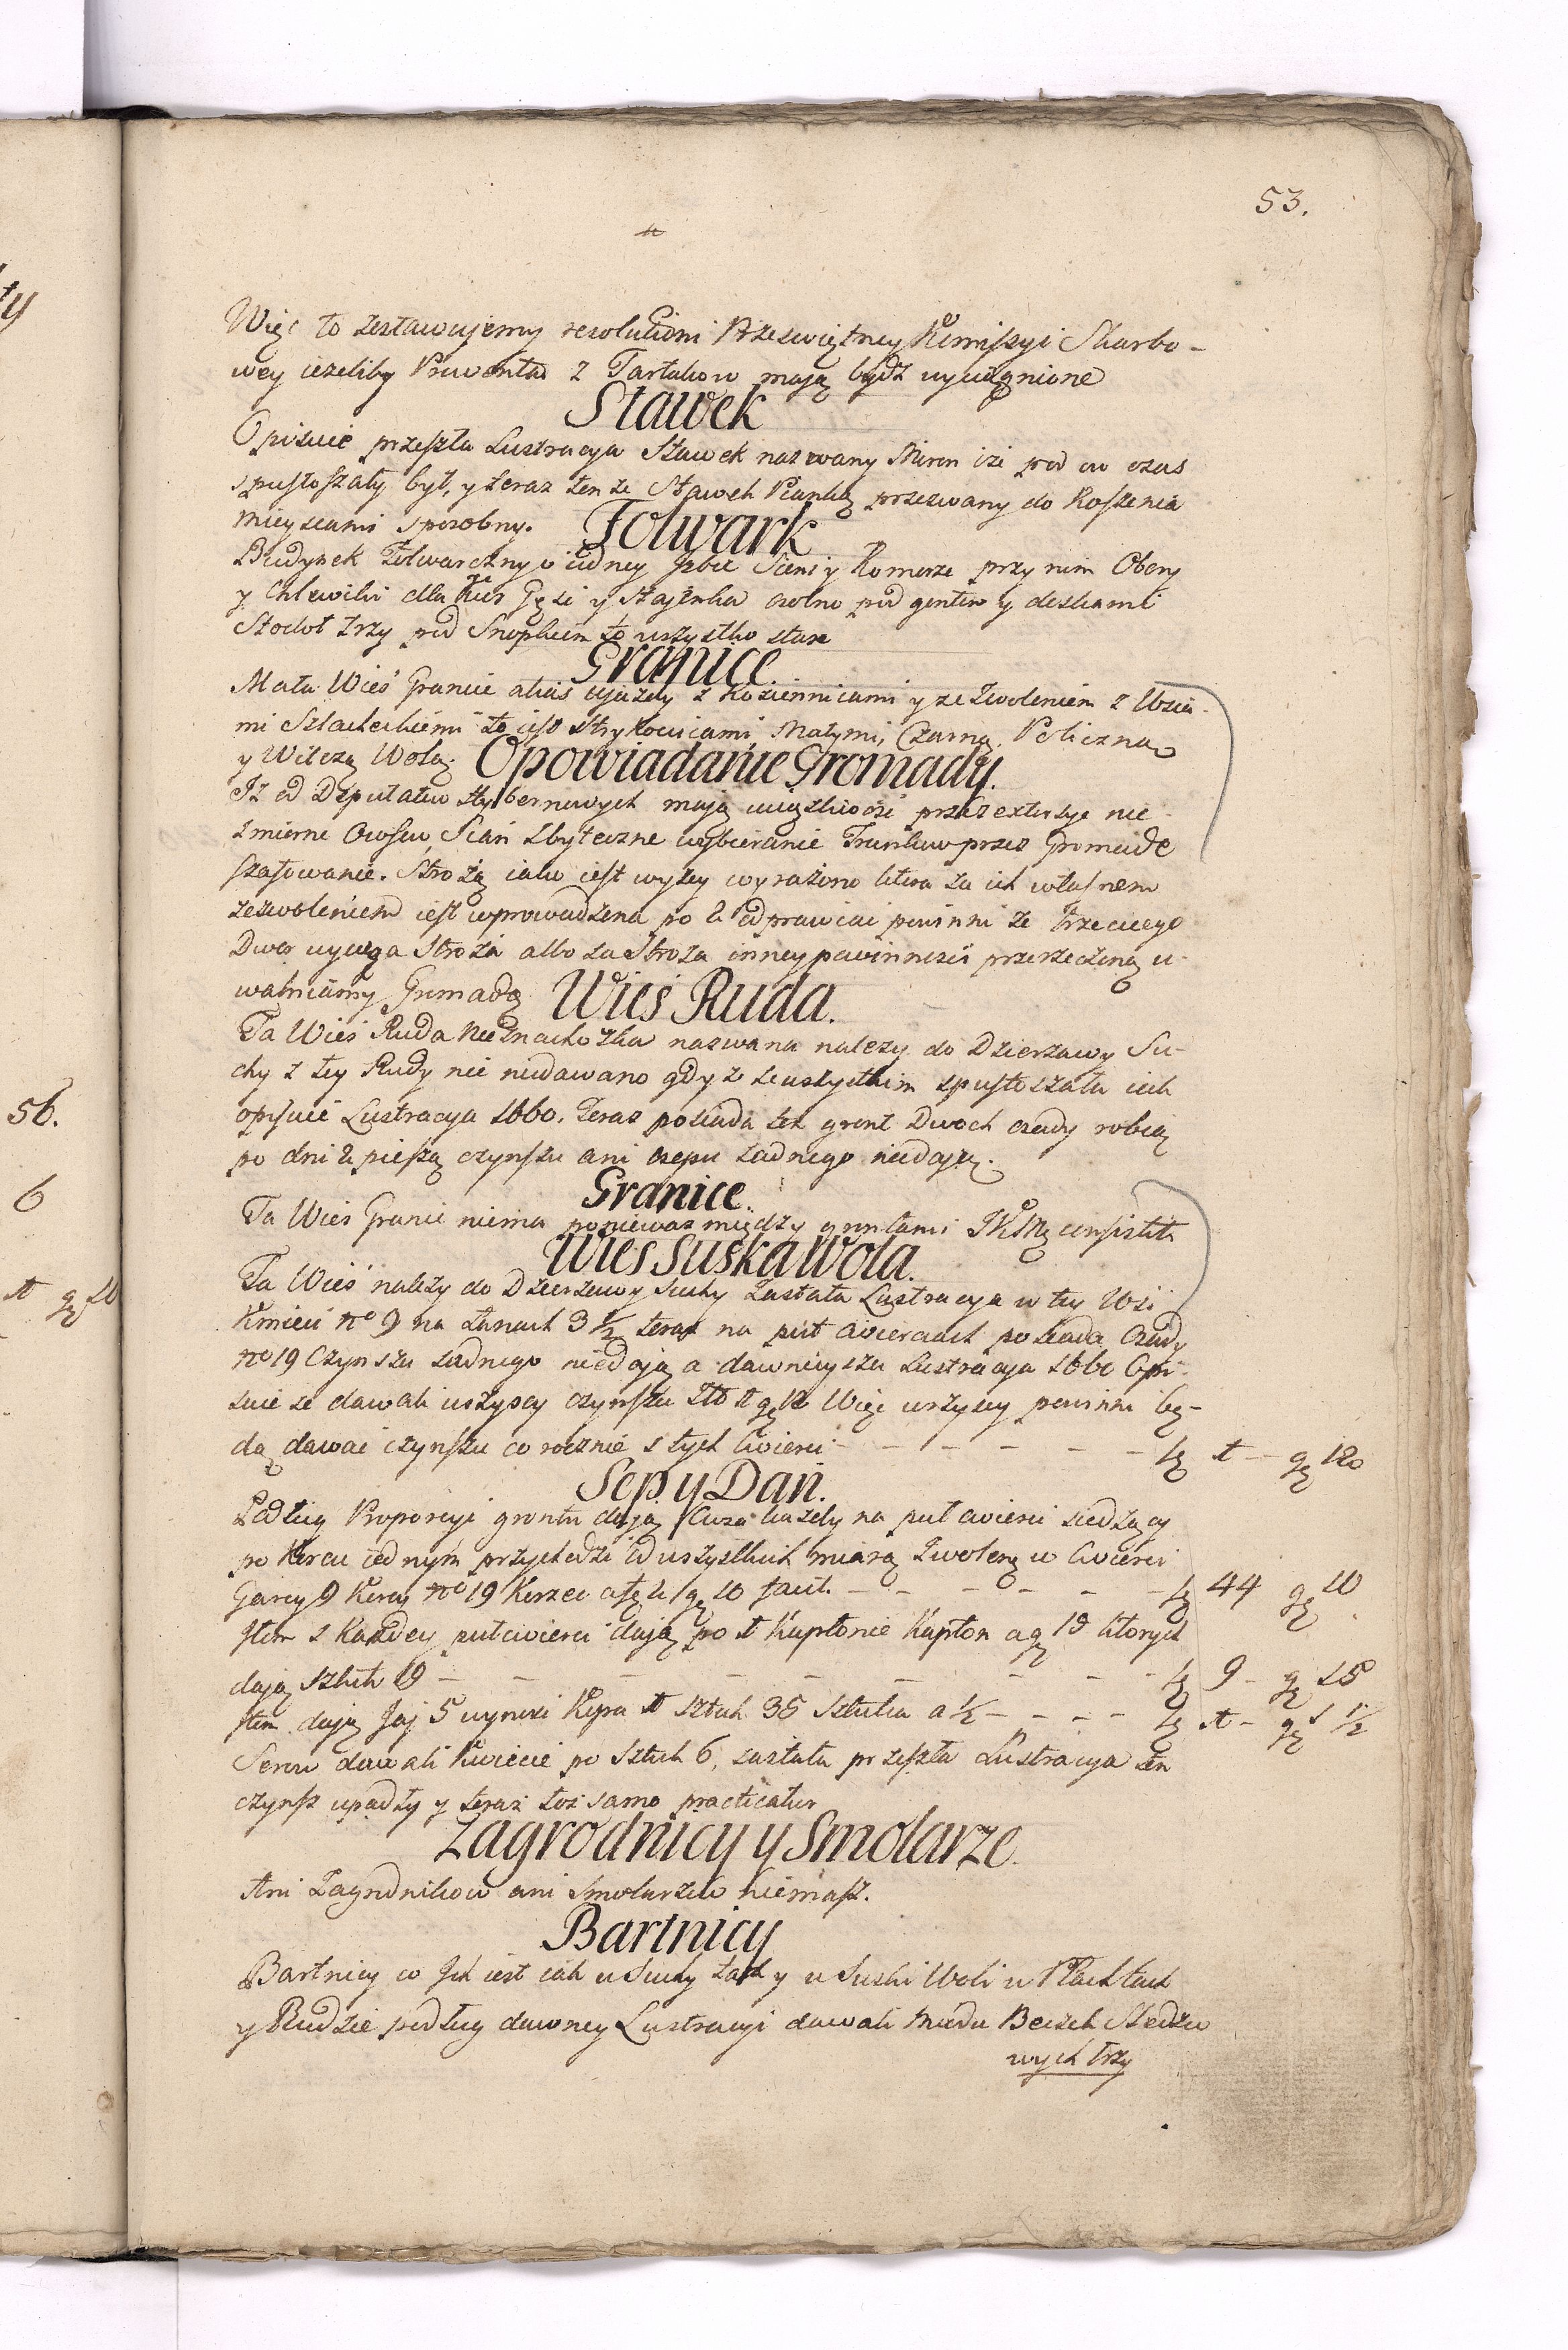 53.
Więc to zostawujemy resolutioni Przeświętney Komissyi Skarbo-
wey ieżeliby Prowenta z Tartakow mają bydź wyciągnione
Stawek
Opisuie przeszła Lustracya Stawek nazwany Miron iże pod on czas
spustoszały był, y teraz tenże Stawek przezwany do Koszenia
mieyscami sposobny. Folwark
Budynek Folwarczny o iedney Izbie Sieni y Komorze przy nim Obory
y Chlewiki dla Kur Gęsi y Stajenka wolno pod gontem y deskami
Stodoł trzy pod Snopkiem to wszystko stare
Granice.
Mała Wieś Granic alias ujazdy z Kozienicami y ze Zwoleniem z Wsia-
mi Szlacheckiemi to iest Strykowicami Małymi, Czarną, Policzną
y Wilczą Wolą. Opowiadanie Gromady.
Iż od Deputatów Hybernowych mają uciążliwość przez extorsye nie-
zmierne Owsów, Sian zbyteczne wybieranie Trunków przez Gromadę
szafowanie. Stróżą iako iest wyżey wyrażono litera za ich własnem
zezwoleniem iest wprowadzena po 2 odprawiać powinni ze trzeciego
Dwor wyciąga Stroża albo za Stroża inney powinności przerzeczoną u-
walniamy Gromadę Wieś Ruda.
Ta Wieś Ruda nazwana należy do Dzierżawy Su-
chy z tey Rudy nic niedawano gdyż ze wszystkim spustoszała iak
opisuie Lustracya 1660. Teraz posiada ten grunt Dwoch osady robią
po dni 2 pieszą czynszu ani osepu żadnego niedają.
Granice.
Ta Wieś Granic niema ponieważ między gruntami JKMę consistit
Wieś Suska Wola.
Ta Wieś należy do Dzierżawy Suchy Zastała Lustracya w tey Wsi
Kmieci no 9 na Łanach 3 1/2 teraz na puł ćwierciach posiada Osady
no 19 Czynszu żadnego niedają a dawnieysza Lustracya 1660 Opi-
suie że dawali wszyscy czynszu Więc wszyscy powinni bę-
dą dawać czynszu co rocznie z tych Cwierci - - - - - - - zł 4 - gr 12
Sep. y Dań.
Podług Proporcyi gruntu dają Owsa każdy na puł ćwierci siedzący
po Korcu iednym przychodzi od wszystkich miarą Zwoleną w Cwierci
Garcy 9 Korcy no 19 Korzec a zł 2 gr 10 facit. - - - - - - zł 44 gr 10
Item z Każdey pułćwierci dają po 1 Kapłonie Kapłon a gr 15 Ktorych
dają sztuk 19 - - - - - - - - zł 9 - gr 15
Item dają Jaj 5 wynosi Kopa 1 sztuk 35 Sztuka a 1/2 - - - - zł 1 - gr 1/2
Serow dawali Kmiecie po sztuk 6, zastała przeszła Lustracya ten
czynsz upadły y teraz toż samo practicatur
Zagrodnicy y Smolarze.
Ani Zagrodnikow ani Smolarzow niemasz.
Bartnicy
Bartnicy co Ich iest iak w Suchy tak y w Suski Woli w Płachtach
y Rudzie podług dawney Lustracyi dawali Miodu Beczek Sledzio
wych trzy
56.
6